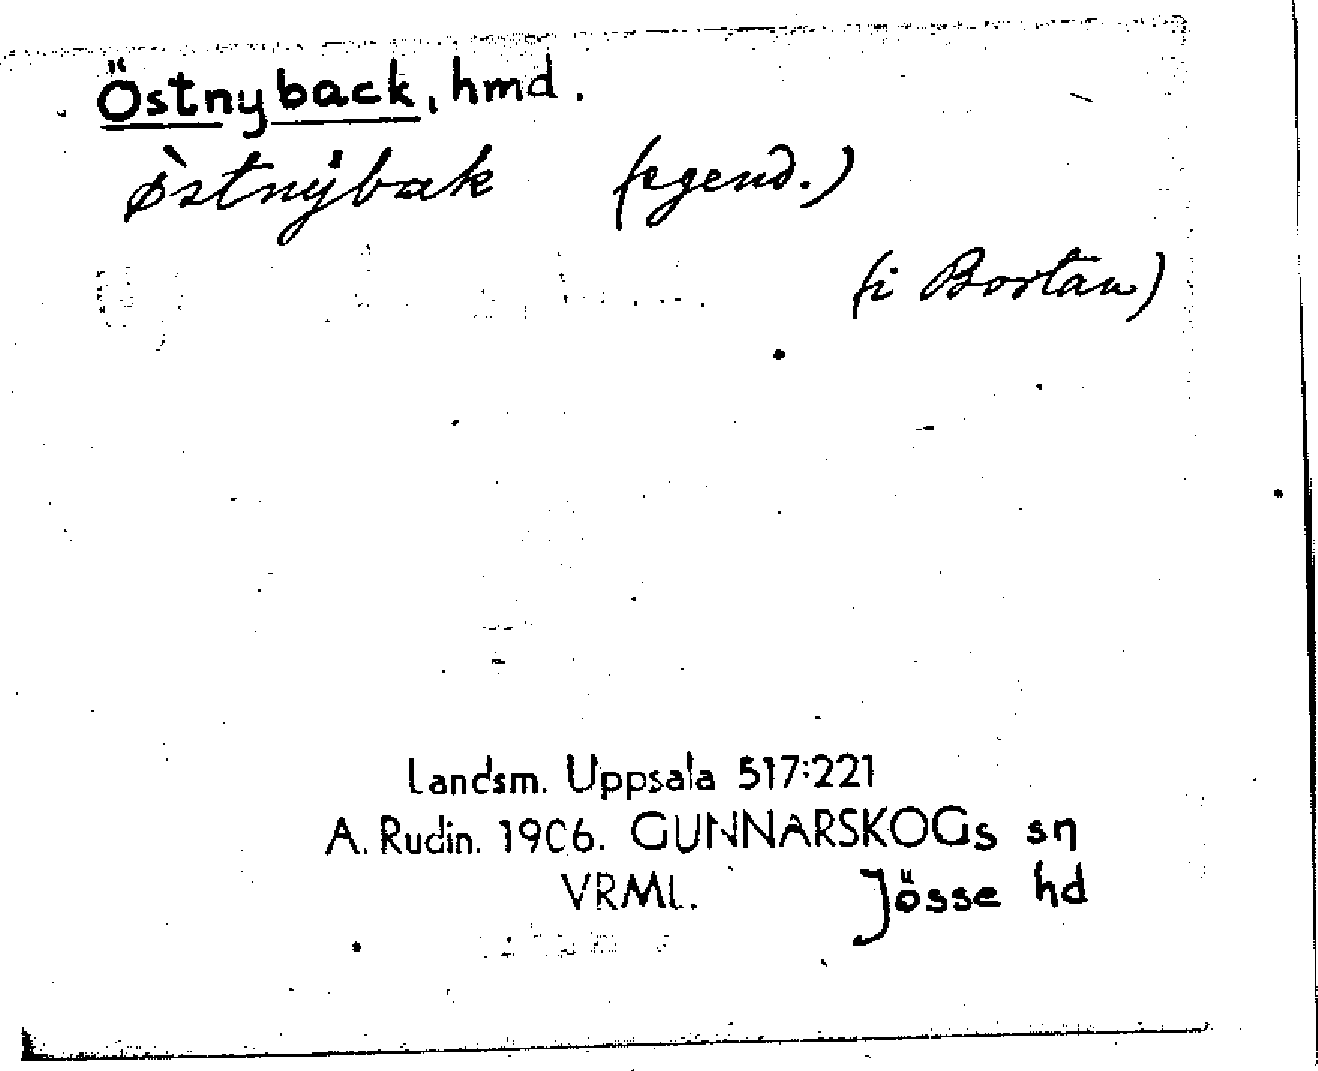 Östnyback, hmd.
østnybak (egend.)
(i Bortan)
Landsm. Uppsala 517:221
A. Rudin. 1906. GUNNARSKOGs sn
VRML. Jösse hd